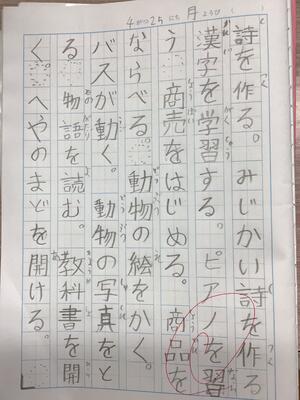 4がつ25にち 月ようび ( )
詩を作る。みじかい詩を作る
漢字を学習する。ピアノを習
う。商売をはじめる。商品を
ならべる。動物の絵をかく。
バスが動く。動物の写真をと
る。物語を読む。教科書を開
く。へやのまどを開ける。